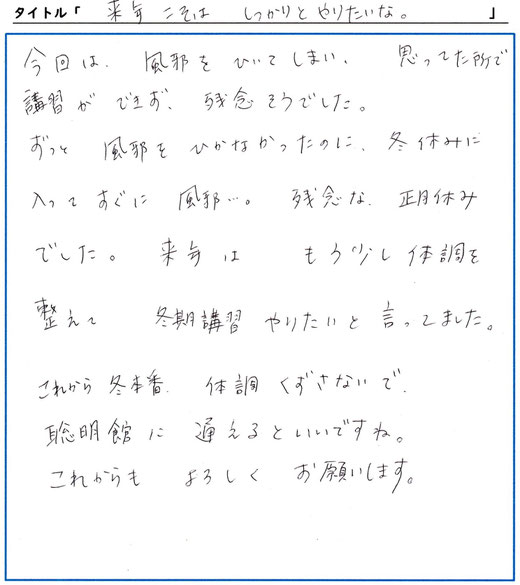 タイトル「 来年こそは しっかりとやりたいな。 」
今回は、風邪をひいてしまい、思ってた所で
講習ができず、残念そうでした。
ずっと風邪をひかなかったのに、冬休みに
入ってすぐに風邪…。残念な、正月休み
でした。来年はもう少し体調を
整えて冬期講習やりたいと言ってました。
これから冬本番、体調くずさないで、
聡明館に通えるといいですね。
これからもよろしくお願いします。